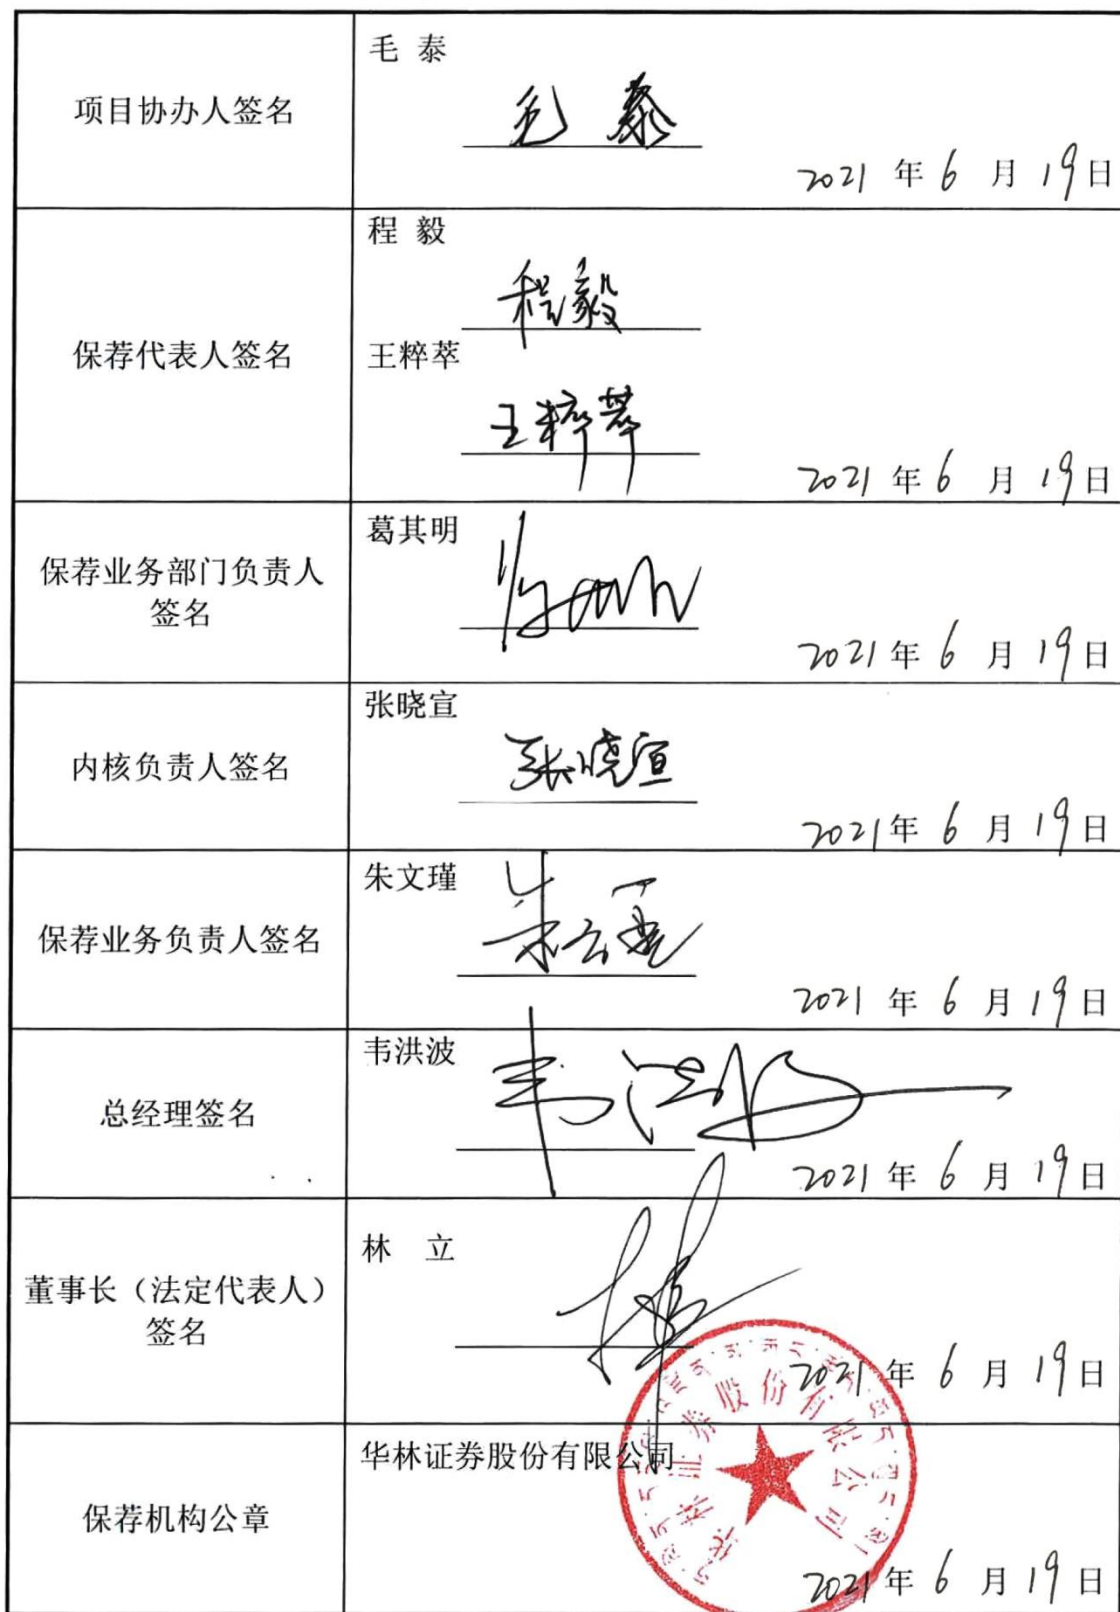 项目协办人签名
毛 泰
毛 泰
2021 年 6 月 19 日
保荐代表人签名
程 毅
程毅
王粹萃
王粹萃
2021 年 6 月 19 日
保荐业务部门负责人
签名
葛其明
2021 年 6 月 19 日
内核负责人签名
张晓宣
张晓宣
2021 年 6 月 19 日
保荐业务负责人签名
朱文瑾
2021 年 6 月 19 日
总经理签名
韦洪波
韦洪波
2021 年 6 月 19 日
董事长（法定代表人）
签名
林 立
2021 年 6 月 19 日
保荐机构公章
华林证券股份有限公司
华林证券股份有限公司
2021 年 6 月 19 日